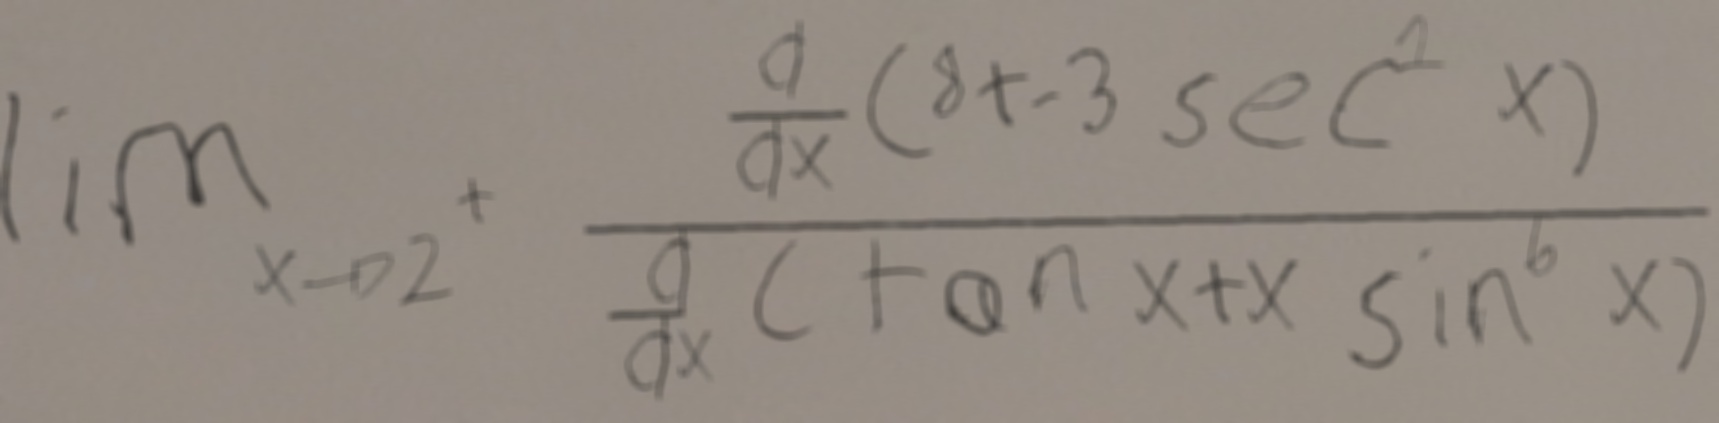 \lim_{x \to 2^+} \frac{\frac{d}{dx}(8t-3\sec^2 x)}{\frac{d}{dx}(\tan x+x\sin^6 x)}